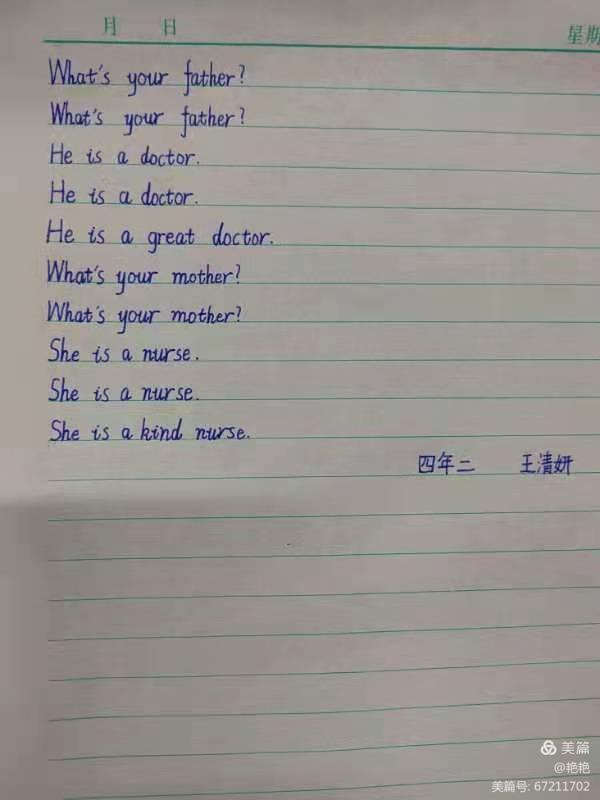 月 日 星期
What's your father?
What's your father?
He is a doctor.
He is a doctor.
He is a great doctor.
What's your mother?
What's your mother?
She is a nurse.
She is a nurse.
She is a kind nurse.
四年二 王清妍
美篇
@艳艳
美篇号: 67211702